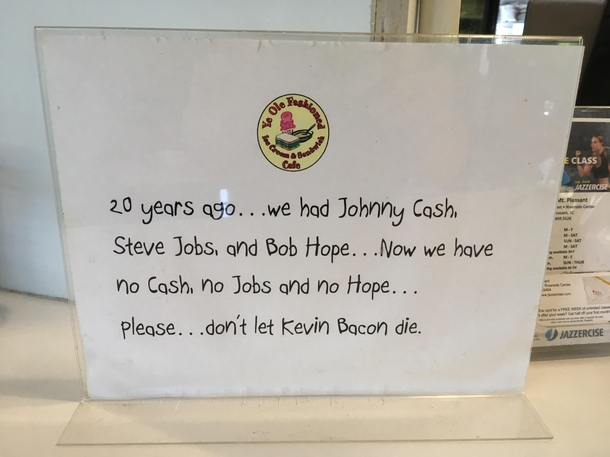 Ye Ole Fashioned
Ice Cream & Sandwich
Cafe
20 years ago...we had Johnny Cash,
Steve Jobs, and Bob Hope...Now we have
no Cash, no Jobs and no Hope...
please...don't let Kevin Bacon die.
E CLASS
JAZZERCISE
Mt. Pleasant
M-F
M-SAT
SUN-SAT
M-F
SUN-THUR
JAZZERCISE